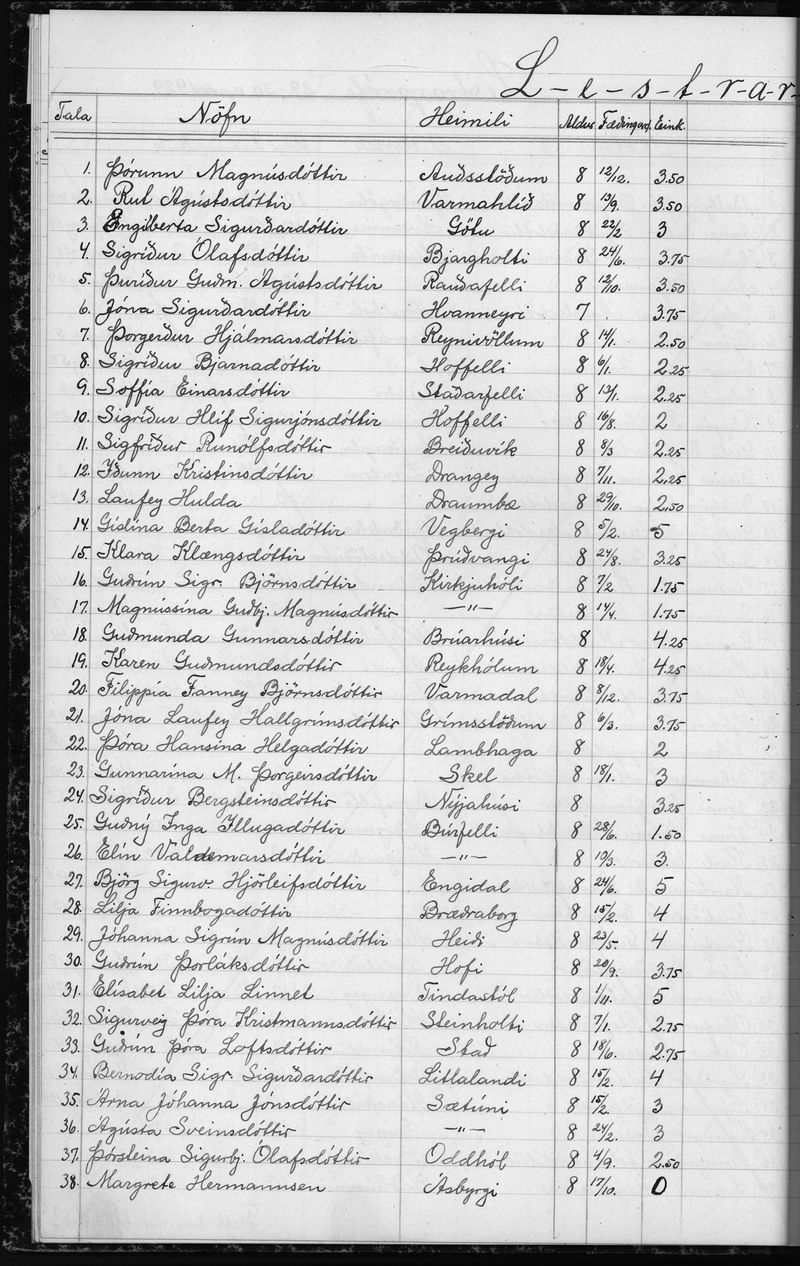 L-e-s-t-r-a-r-
Tala Nöfn Heimili Aldur Fæðingard. Eink.
1. Þórunn Magnúsdóttir Auðsstöðum 8 12/12. 3.50
2. Rut Ágústsdóttir Varmahlíð 8 13/9. 3.50
3. Engilberta Sigurðardóttir Götu 8 22/2 3
4. Sigríður Ólafsdóttir Bjargholti 8 24/6. 3.75
5. Þuríður Guðm. Ágústsdóttir Rauðafelli 8 12/10. 3.50
6. Jóna Sigurðardóttir Hvanneyri 7 . 3.75
7. Þorgerður Hjálmarsdóttir Reynivöllum 8 14/1. 2.50
8. Sigríður Bjarnadóttir Hoffelli 8 6/1. 2.25
9. Soffía Einarsdóttir Staðarfelli 8 13/1. 2.25
10. Sigríður Hlíf Sigurjónsdóttir Hoffelli 8 16/8. 2
11. Sigfríður Runólfsdóttir Breiðuvík 8 8/3 2.25
12. Iðunn Kristinsdóttir Drangey 8 7/11. 2.25
13. Laufey Hulda Draumbæ 8 29/10. 2.50
14. Gíslína Berta Gísladóttir Vegbergi 8 5/2. 5
15. Klara Klængsdóttir Þrúðvangi 8 24/8. 3.25
16. Guðrún Sigr. Björnsdóttir Kirkjuhóli 8 7/2 1.75
17. Magnússína Guðbj. Magnúsdóttir —"— 8 14/4. 1.75
18. Guðmunda Gunnarsdóttir Brúarhúsi 8 4.25
19. Karen Guðmundsdóttir Reykhólum 8 18/4. 4.25
20. Filippía Fanney Björnsdóttir Varmadal 8 8/12. 3.75
21. Jóna Laufey Hallgrímsdóttir Grímsstöðum 8 6/3. 3.75
22. Þóra Hansína Helgadóttir Lambhaga 8 2
23. Gunnarína M. Þorgeirsdóttir Skel 8 18/1. 3
24. Sigríður Bergsteinsdóttir Nýjahúsi 8 3.25
25. Guðný Inga Illugadóttir Búrfelli 8 28/6. 1.50
26. Elín Valdemarsdóttir —"— 8 19/3. 3.
27. Björg Sigurv. Hjörleifsdóttir Engidal 8 24/6. 5
28. Lilja Finnbogadóttir Bræðraborg 8 15/2. 4
29. Jóhanna Sigrún Magnúsdóttir Heiði 8 23/5 4
30. Guðrún Þorláksdóttir Hofi 8 20/9. 3.75
31. Elísabet Lilja Linnet Tindastól 8 1/11. 5
32. Sigurveig Þóra Kristmannsdóttir Steinholti 8 7/1. 2.75
33. Guðrún Þóra Loftsdóttir Stað 8 18/6. 2.75
34. Bernodía Sigr. Sigurðardóttir Litlalandi 8 15/2. 4
35. Árna Jóhanna Jónsdóttir Sætúni 8 15/2. 3
36. Ágústa Sveinsdóttir —"— 8 24/2. 3
37. Þórsteina Sigurbj. Ólafsdóttir Oddhól 8 4/9. 2.50
38. Margrete Hermannsen Ásbyrgi 8 17/10. 0